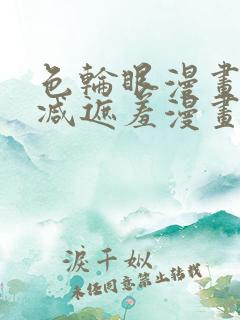 色輪眼漫畫
減遮羞漫畫
淚千姒
未经同意禁止转载